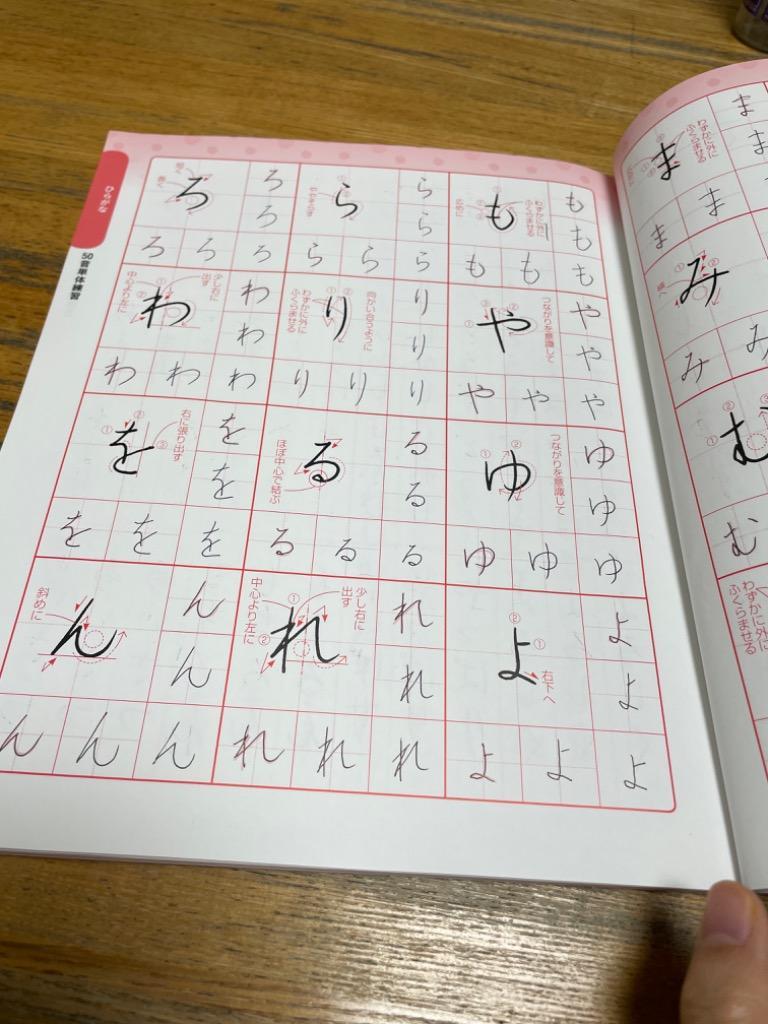 ひらがな
50音単体練習
ま
わずかに外に
ふくらませる
ま
ま
ま ま
み
み み
む
む
わずかに外に
ふくらませる
も
わずかに外に
ふくらませる
も
も
も も も
や
つながりを意識して
や
や
や や や
ゆ
つながりを意識して
ゆ
ゆ
ゆ ゆ ゆ
よ
右下へ
よ
よ
よ よ よ
ら
ら
ら
ら ら ら
り
向かい合うように
わずかに外に
ふくらませる
り
り
り り り
る
ほぼ中心で結ぶ
る
る
る る る
れ
少し右に
出す
中心より左に
れ
れ
れ れ れ
ろ
ろ
ろ
ろ ろ ろ
わ
少し右に
出す
中心より左に
わ
わ
わ わ わ
を
右に張り出す
を
を
を を を
ん
斜めに
ん
ん
ん ん ん